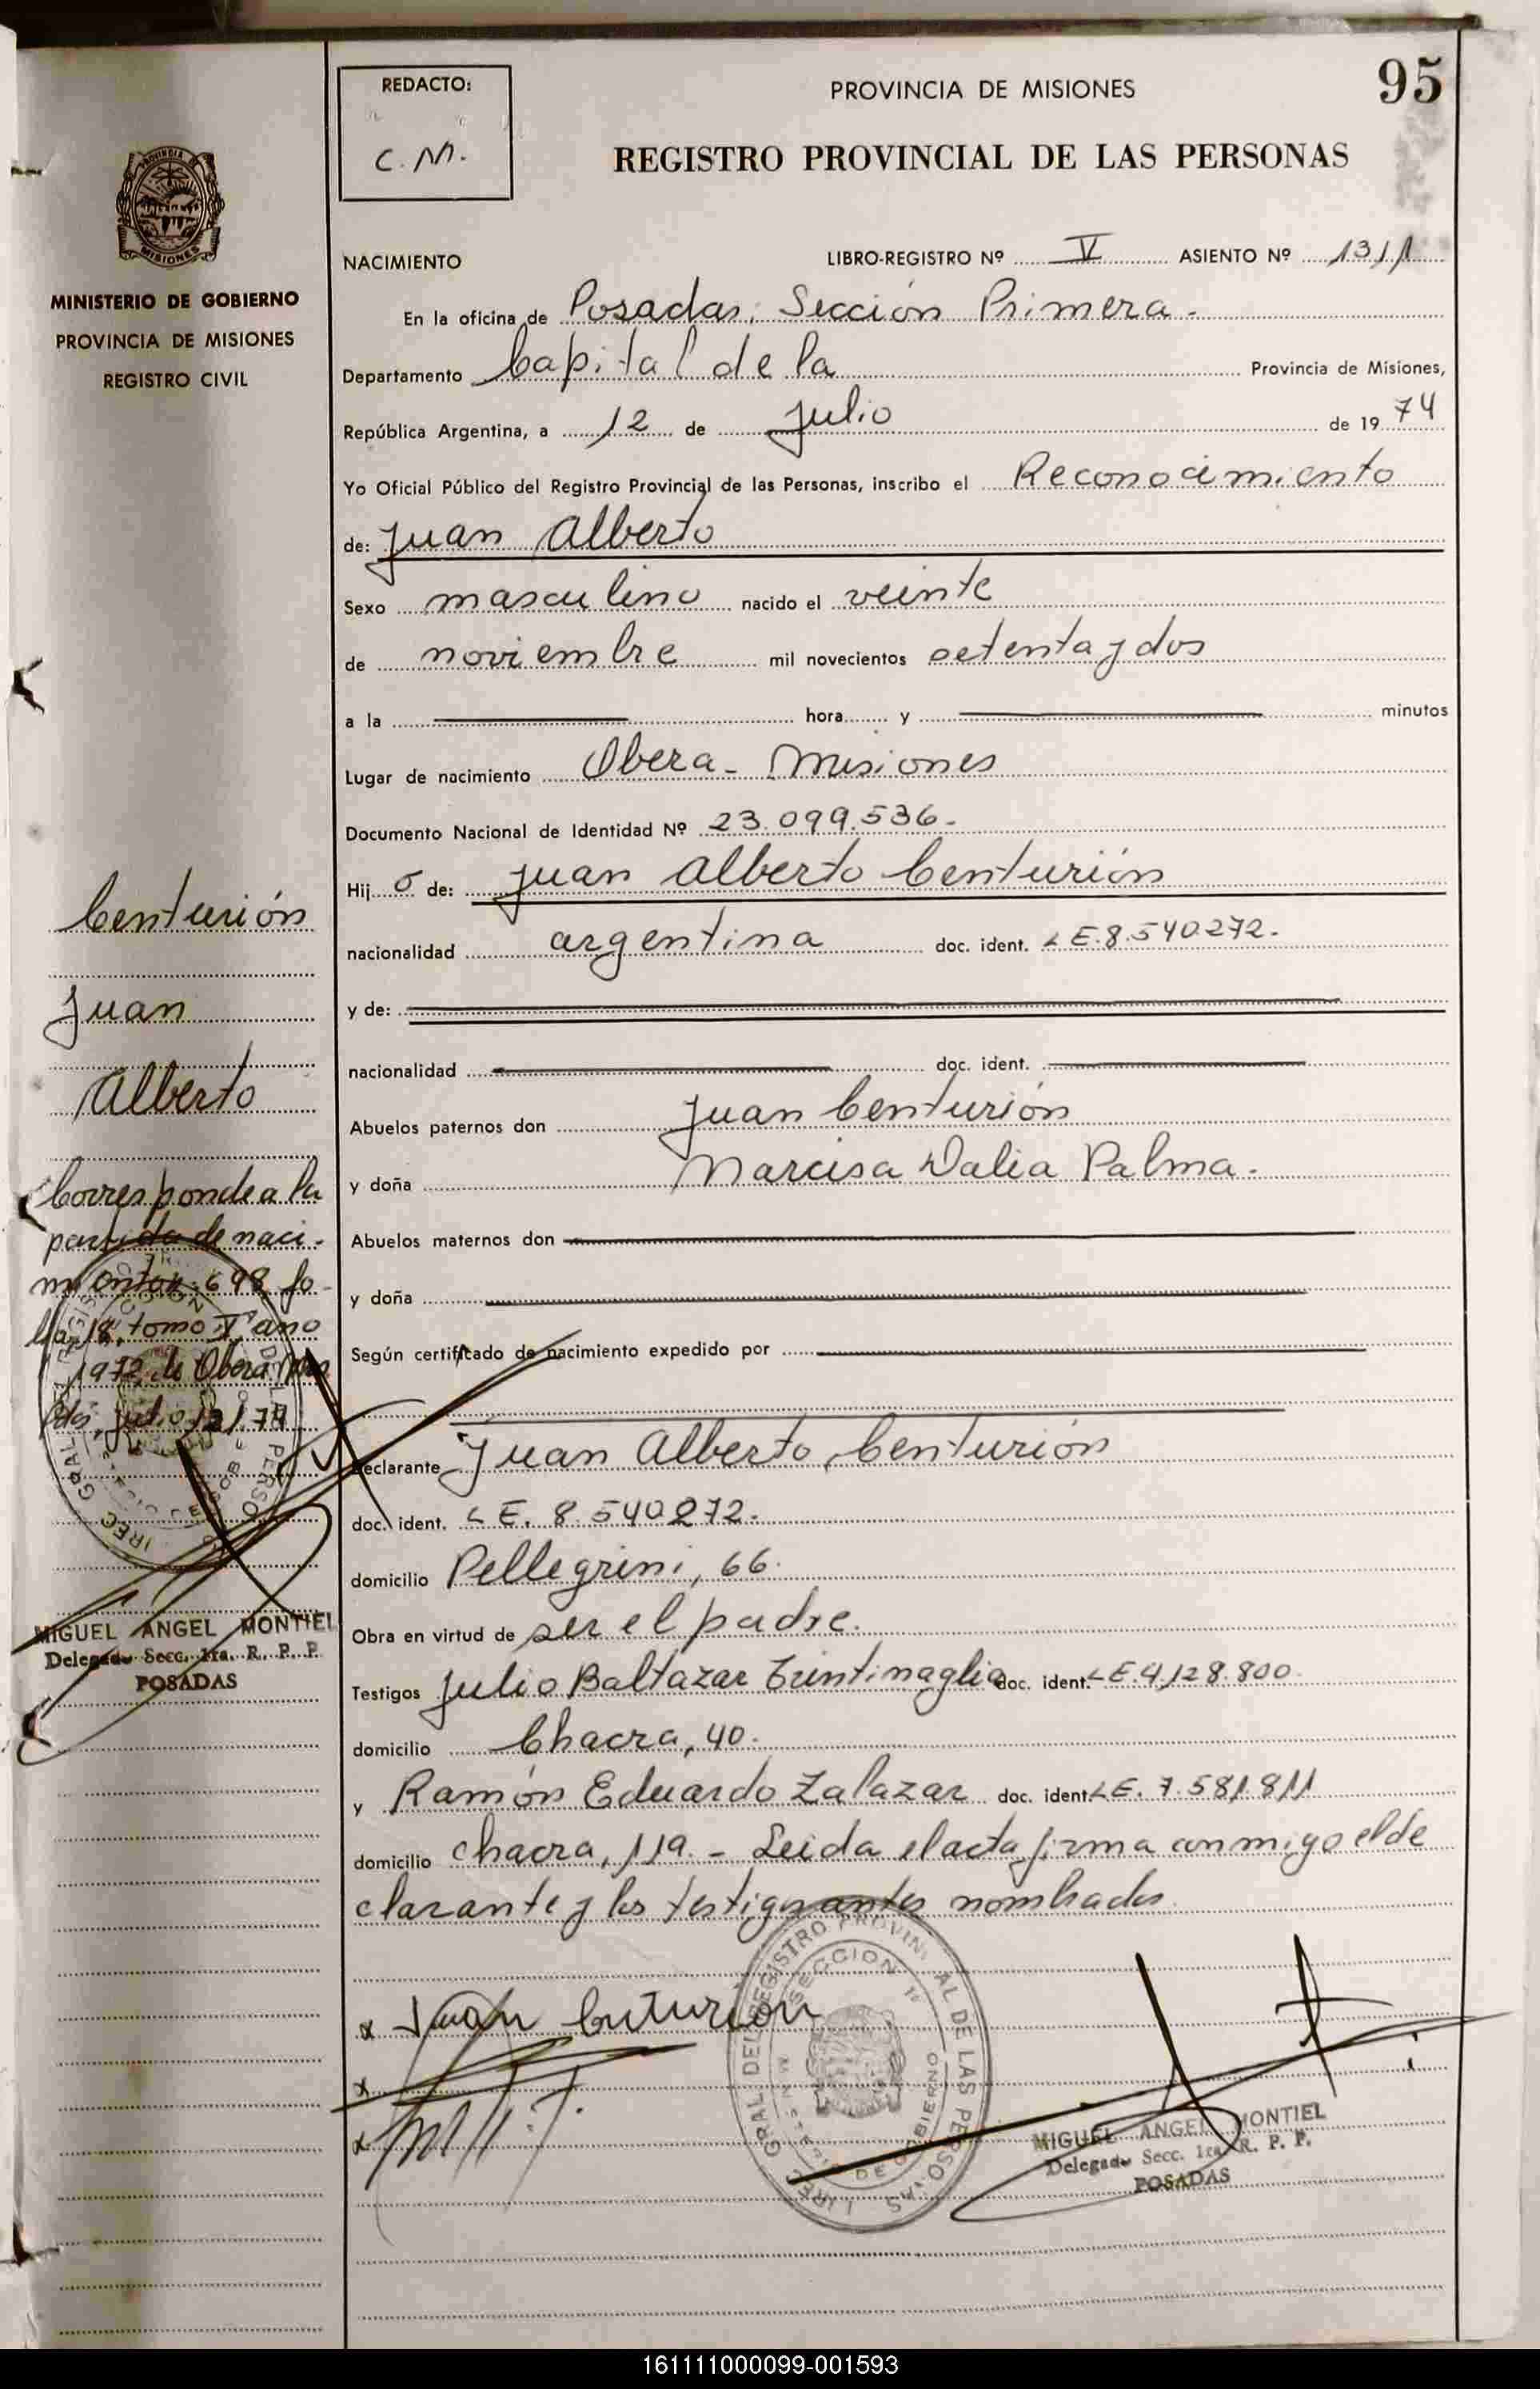 95
REDACTO:
C. M.
PROVINCIA DE MISIONES
REGISTRO PROVINCIAL DE LAS PERSONAS
MINISTERIO DE GOBIERNO
PROVINCIA DE MISIONES
REGISTRO CIVIL
NACIMIENTO LIBRO-REGISTRO Nº V ASIENTO Nº 1311
En la oficina de Posadas, Sección Primera.
Departamento Capital de la Provincia de Misiones,
República Argentina, a 12 de Julio de 1974
Yo Oficial Público del Registro Provincial de las Personas, inscribo el Reconocimiento
de: Juan Alberto
Sexo masculino nacido el veinte
de noviembre mil novecientos setenta y dos
a la hora y minutos
Lugar de nacimiento Obera - Misiones
Documento Nacional de Identidad Nº 23.099.536.
Hijo de: Juan Alberto Centurión
nacionalidad argentina doc. ident. L E. 8.540272.
y de:
nacionalidad doc. ident.
Abuelos paternos don Juan Centurión
y doña Narcisa Dalia Palma.
Abuelos maternos don
y doña
Según certificado de nacimiento expedido por
Declarante Juan Alberto Centurión
doc. ident. L E. 8.540272.
domicilio Pellegrini, 66.
Obra en virtud de ser el padre.
Testigos Julio Baltazar doc. ident. L E. 4,128.800.
domicilio Chacra, 40.
y Ramón Eduardo Zalazar doc. ident. L E. 7.581.811
domicilio chacra, 119. - Leida el acta firma conmigo el de
clarante y los testigantes nombrados.
x Juan Centurion
x
x
MIGUEL ANGEL MONTIEL
Delegado Secc. 1ra. R. P. P.
POSADAS
Centurión
Juan
Alberto
Corresponde a la
partida de naci-
miento nº 698 fo-
lio 18, tomo I, año
1972 de Obera
julio 12/74
MIGUEL ANGEL MONTIEL
Delegado Secc. 1ra. R. P. P.
POSADAS
161111000099-001593